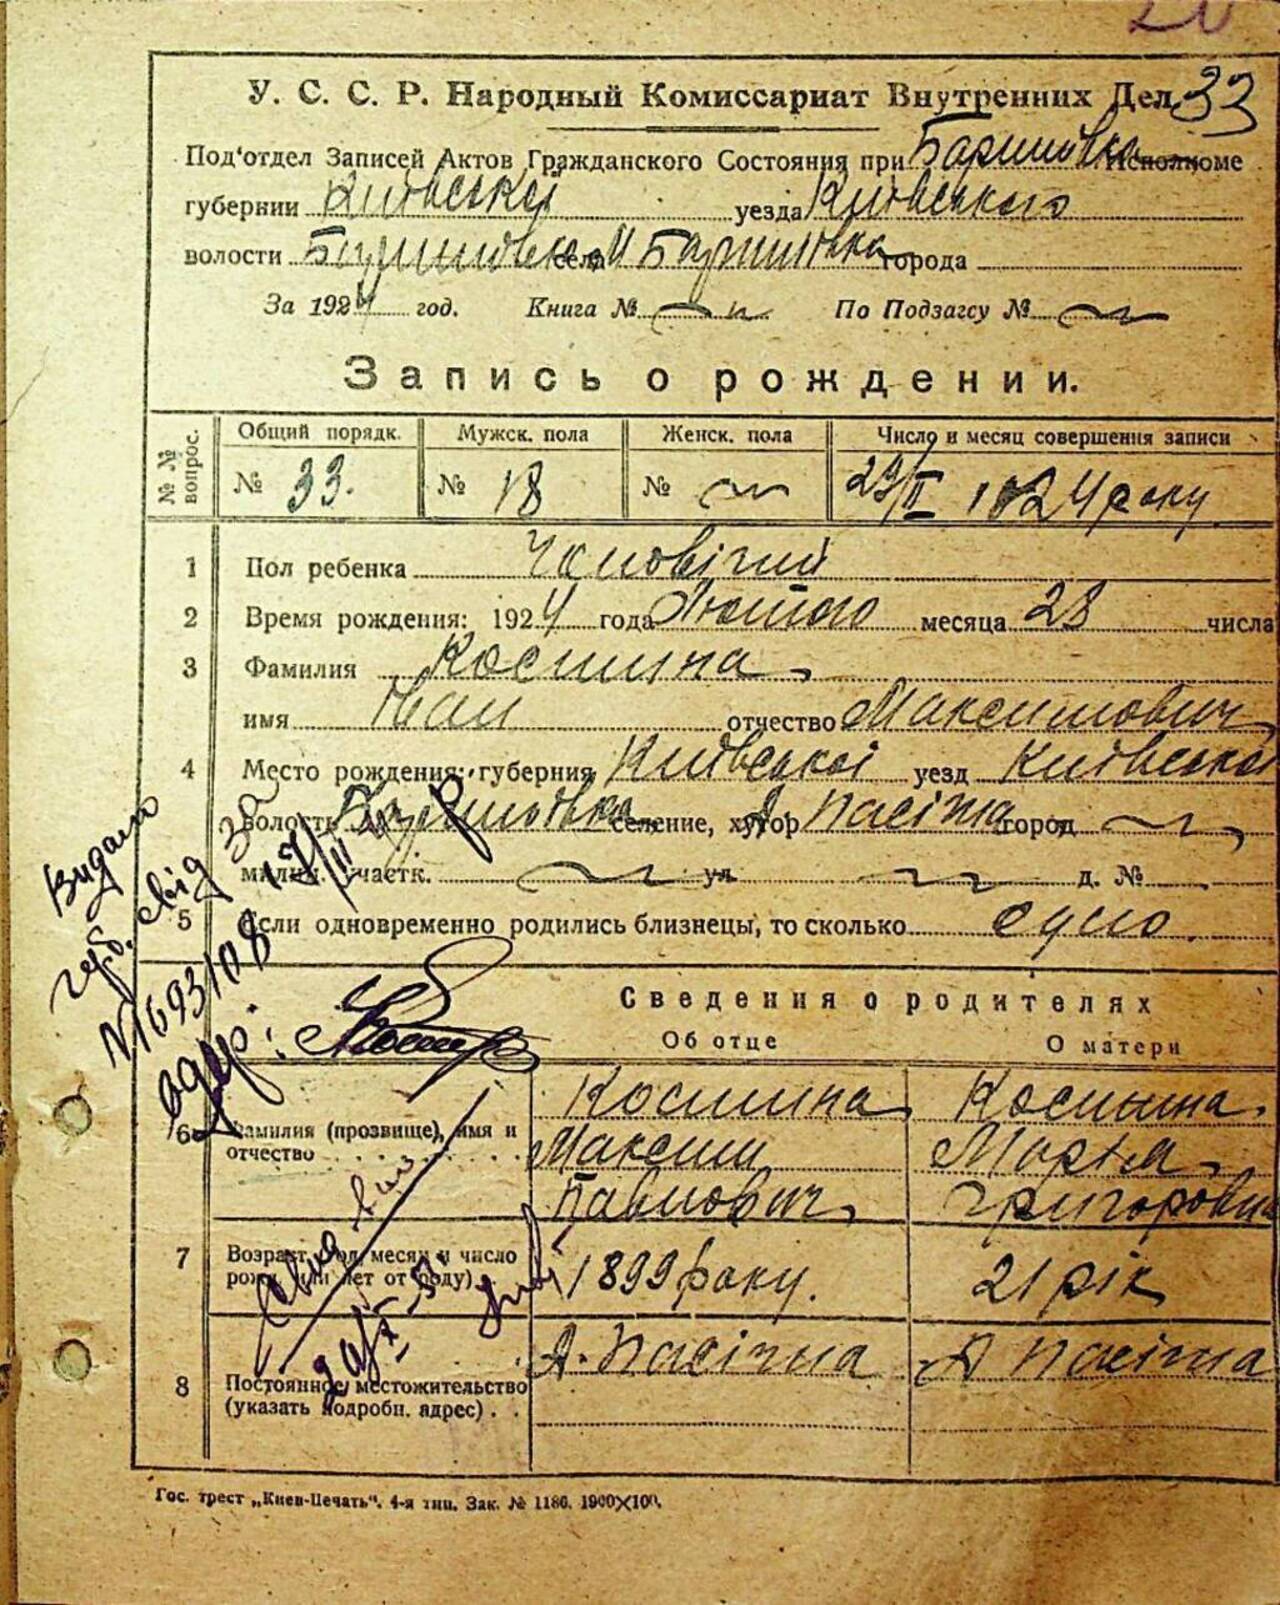 20
У. С. С. Р. Народный Комиссариат Внутренних Дел 33
Под'отдел Записей Актов Гражданского Состояния при Баришівка Исполкоме
губернии Київської уезда Київського
волости Баришівка села М Баришівка города
За 1924 год. Книга № По Подзагсу №
Запись о рождении.
№ № вопрос. Общий порядк. Мужск. пола Женск. пола Число и месяц совершения записи
№ 33. № 18 № 29/II 1924 року
1 Пол ребенка Чоловічий
2 Время рождения: 1924 года Лютого месяца 28 числа
3 Фамилия Косинна
имя Іван отчество Максимович
4 Место рождения: губерния Київської уезд Київського
волость Баришівка селение, хутор Пасічна город
милиц. участк. ул. д. №
5 Если одновременно родились близнецы, то сколько одно.
Видано
свід за
N 1693/108 17/III
одер:
Сведения о родителях
Об отце О матери
6 Фамилия (прозвище), имя и отчество
Косинна Косинна
Максим Марія
Павлович Григоровна
7 Возраст (год, месяц и число рожд. или лет от роду) 1899 року. 21 рік
8 Постоянное местожительство (указать подробн. адрес) Пасічна Пасічна
Гос. трест „Киев-Печать“. 4-я тип. Зак. № 1186. 1900×100.